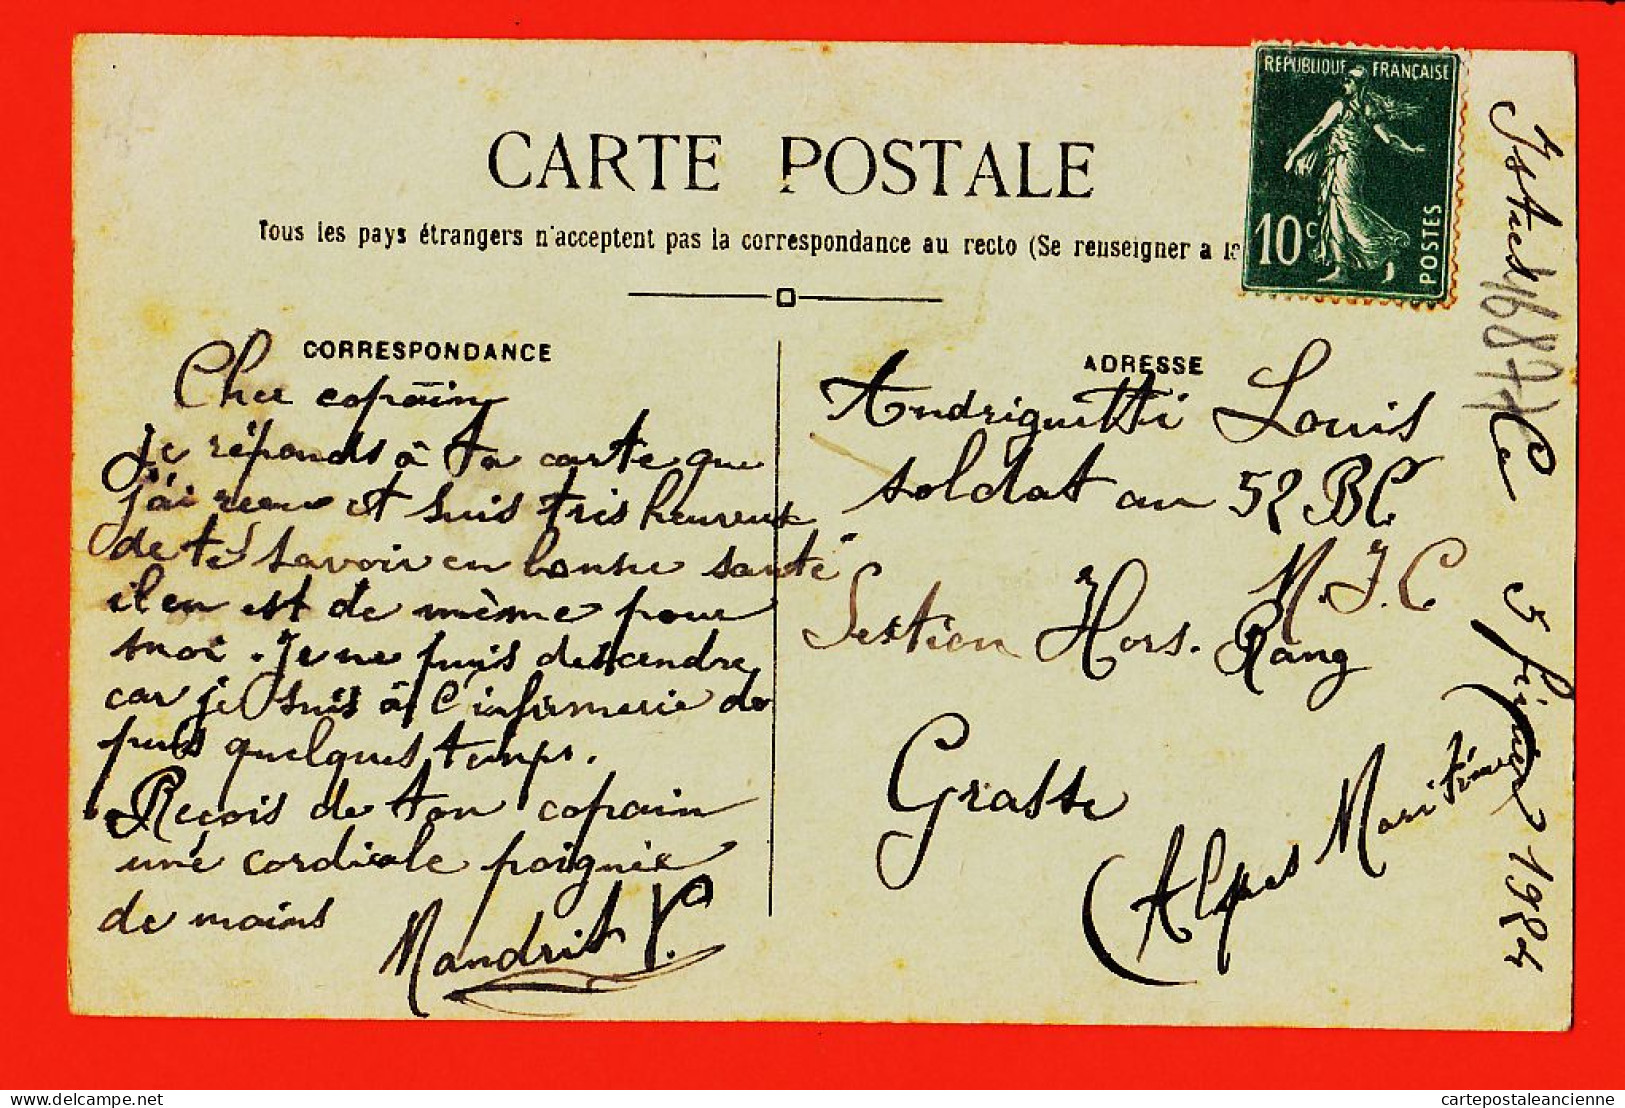 CARTE POSTALE
Tous les pays étrangers n'acceptent pas la correspondance au recto (Se renseigner a la
REPUBLIQUE FRANÇAISE
10c
POSTES
CORRESPONDANCE
Cher copain
Je réponds à ta carte que
j'ai recu et suis tris heureux
de te savoir en bonne santé
il en est de même pour
moi. Je ne puis descendre
car je suis à l'infirmerie de
puis quelques temps.
Reçois de ton copain
une cordiale poignée
de mains
Mandrit V.
ADRESSE
Andriguetti Louis
soldat au 52 BC
M.J.C
Section Hors. Rang
Grasse
(Alpes Maritime
Istres Le 5 février 1924
cartepostaleancienne.com
cartepostaleancienne